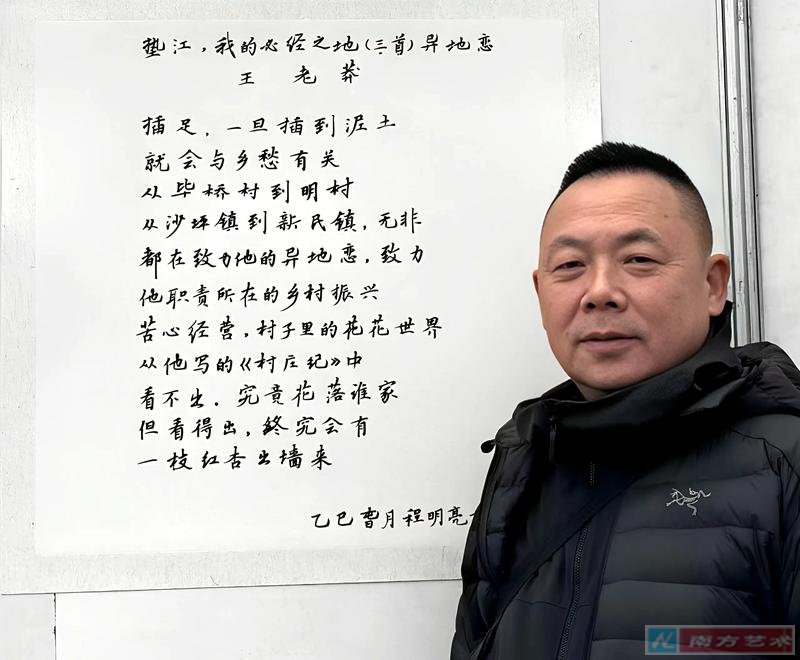 垫江，我的必经之地(三首)异地恋
王老莽
插足，一旦插到泥土
就会与乡愁有关
从毕桥村到明村
从沙坪镇到新民镇，无非
都在致力他的异地恋，致力
他职责所在的乡村振兴
苦心经营，村子里的花花世界
从他写的《村庄纪》中
看不出．究竟花落谁家
但看得出，终究会有
一枝红杏出墙来
乙巳 月程明亮
南方艺术